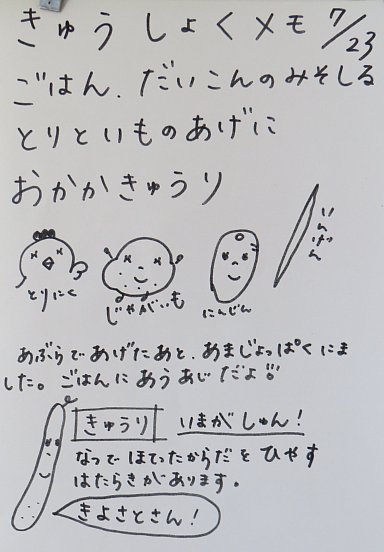 きゅうしょくメモ 7/23
ごはん、だいこんのみそしる
とりといものあげに
おかかきゅうり
とりにく
じゃがいも
にんじん
いんげん
あぶらであげたあと、あまじょっぱくにま
した。ごはんにあうあじだよ!!
きゅうり いまがしゅん!
なつでほてったからだをひやす
はたらきがあります。
きよさとさん!